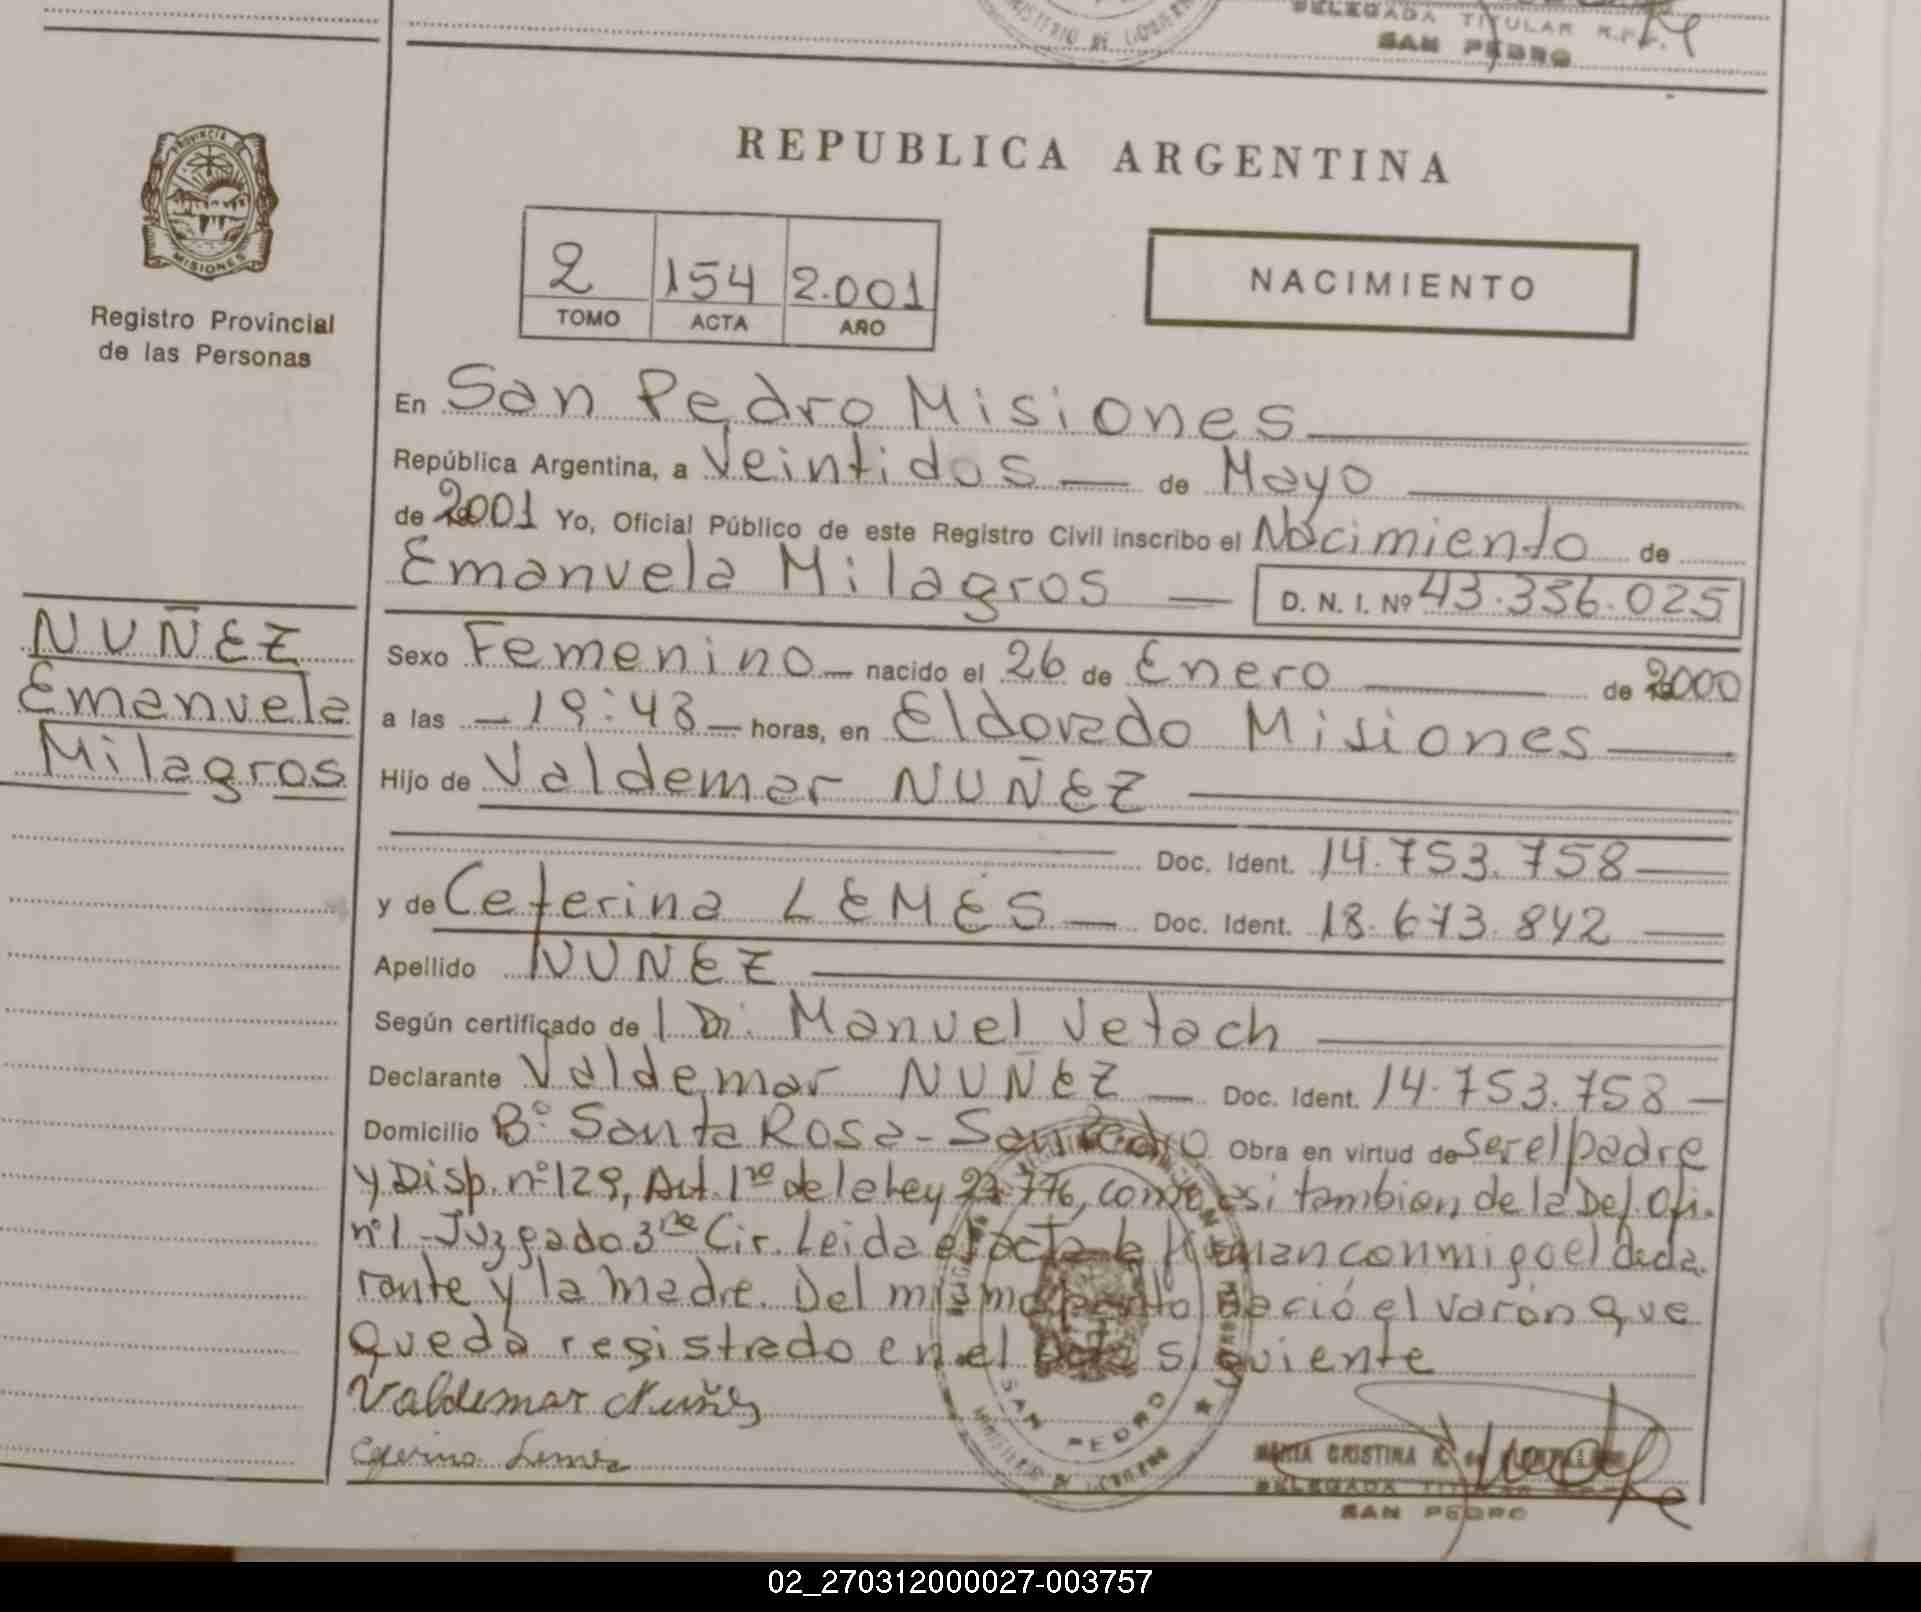 MINISTERIO DE GOBIERNO
DELEGADA TITULAR R.P.P.
SAN PEDRO
PROVINCIA DE
MISIONES
Registro Provincial
de las Personas
REPUBLICA ARGENTINA
2 154 2.001
TOMO ACTA AÑO
NACIMIENTO
En San Pedro Misiones
República Argentina, a Veintidos de Mayo
de 2001 Yo, Oficial Público de este Registro Civil inscribo el Nacimiento de
Emanuela Milagros D. N. I. Nº 43.336.025
NUÑEZ
Emanuela
Milagros
Sexo Femenino nacido el 26 de Enero de 2000
a las 19:43 horas, en Eldorado Misiones
Hijo de Valdemar NUÑEZ
Doc. Ident. 14.753.758
y de Ceferina LEMES Doc. Ident. 18.673.842
Apellido NUNEZ
Según certificado de Dr. Manuel Vetach
Declarante Valdemar NUÑEZ Doc. Ident. 14.753.758
Domicilio Bº Santa Rosa - San Pedro Obra en virtud de ser el padre
y Disp. nº 129, Art. 1ro de la Ley 22.776, como asi tambien de la Def. Ofi.
nº 1 - Juzgado 3ra Cir. Leida el acta la firman conmigo el decla
rante y la madre. Del mismo parto nació el varón que
queda registrado en el acta siguiente
Valdemar Nuñes
Ceferino Lemes
SAN PEDRO
MINISTERIO DE GOBIERNO
MARIA CRISTINA R. de
DELEGADA TITULAR
SAN PEDRO
02_270312000027-003757